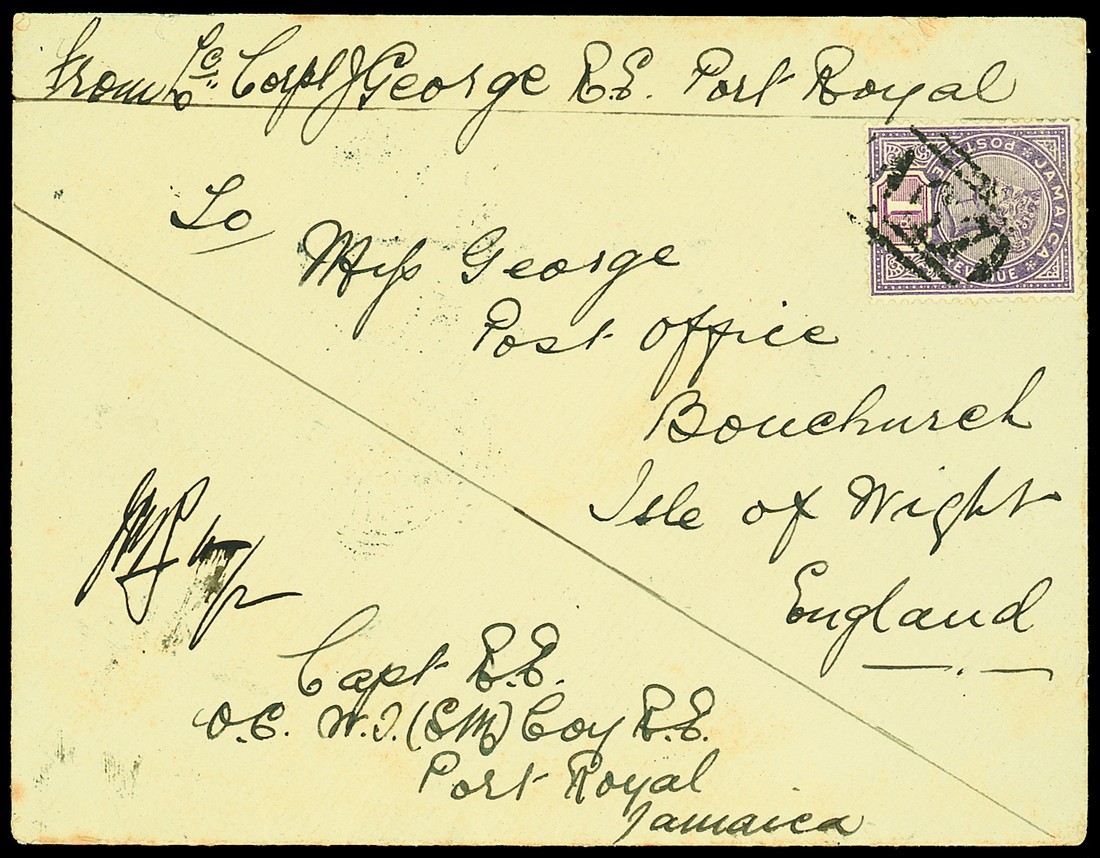 From Lc. Corpl J George R.E. Port Royal
To
Miss George
Post Office
Bonchurch
Isle of Wight
England
Capt R.E.
O.C. W.I. (SM) Coy R.E.
Port Royal
Jamaica
JAMAICA
POSTAGE
REVENUE
1